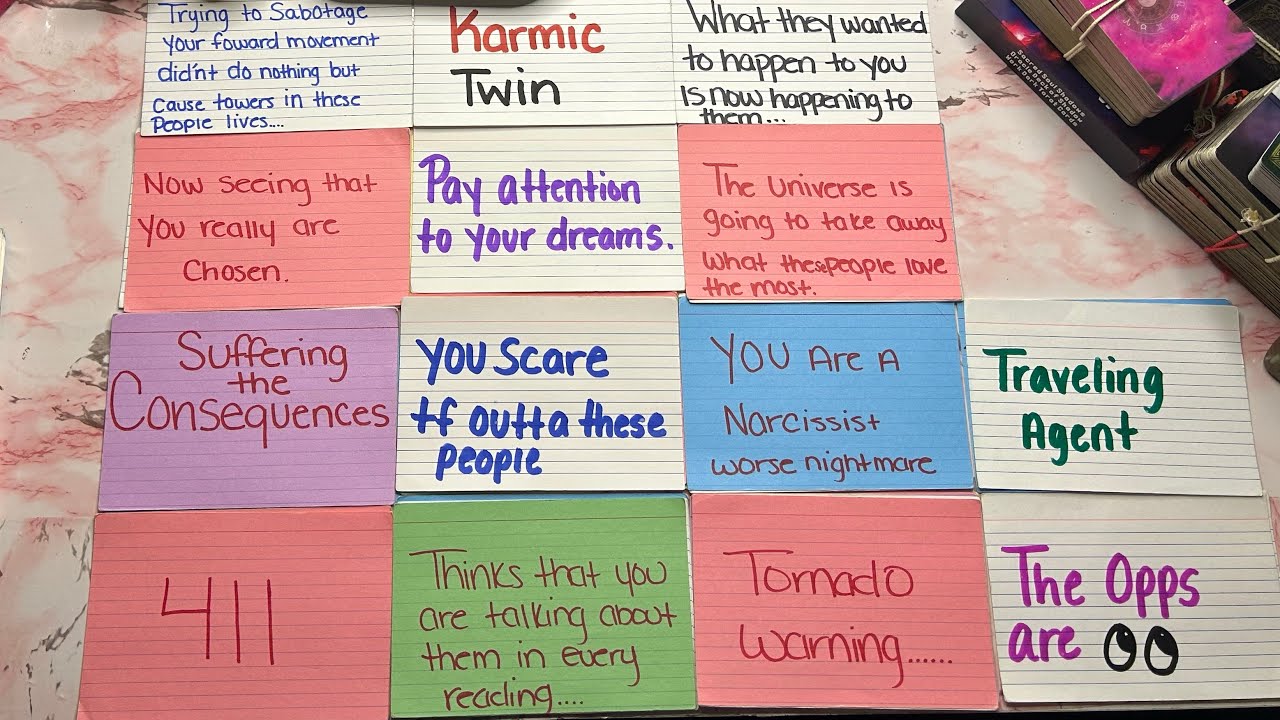 Trying to Sabotage
your foward movement
did'nt do nothing but
cause towers in these
People lives....
Karmic
Twin
What they wanted
to happen to you
Is now happening to
them...
Now seeing that
you really are
Chosen.
Pay attention
to your dreams.
The Universe is
going to take away
what these people love
the most.
Suffering
the
Consequences
YOU Scare
tf outta these
people
YOU Are A
Narcissist
worse nightmare
Traveling
Agent
411
Thinks that you
are talking about
them in every
reading....
Tornado
Warning......
The Opps
are
Sacred Soul Shadows
Oracle Deck of Shadow
Work Dark Tarot Cards